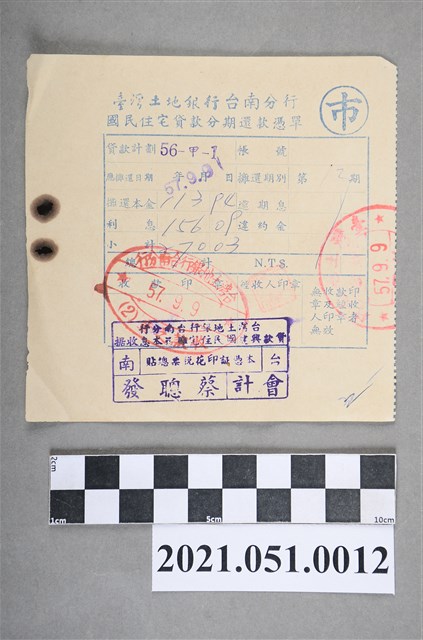 臺灣土地銀行台南分行
國民住宅貸款分期還款憑單
市
貸款計劃 56-甲-1 帳號
應攤還日期 年 月 日 攤還期別 第 12 期
57.9.9
攤還本金 113.94 逾期息
利息 156.09 違約金
小計 270.03
總計 N.T.$
收款印章 經收人印章
無收款印
章及經收
人印章者
無效
57.9.9
(2)
57.9.9
台灣土地銀行台南分行
貸款興建國民住宅基本息收據
台 本憑証印花稅票總貼 南
會計 蔡聰發
2cm
1cm 5cm 10cm
2021.051.0012